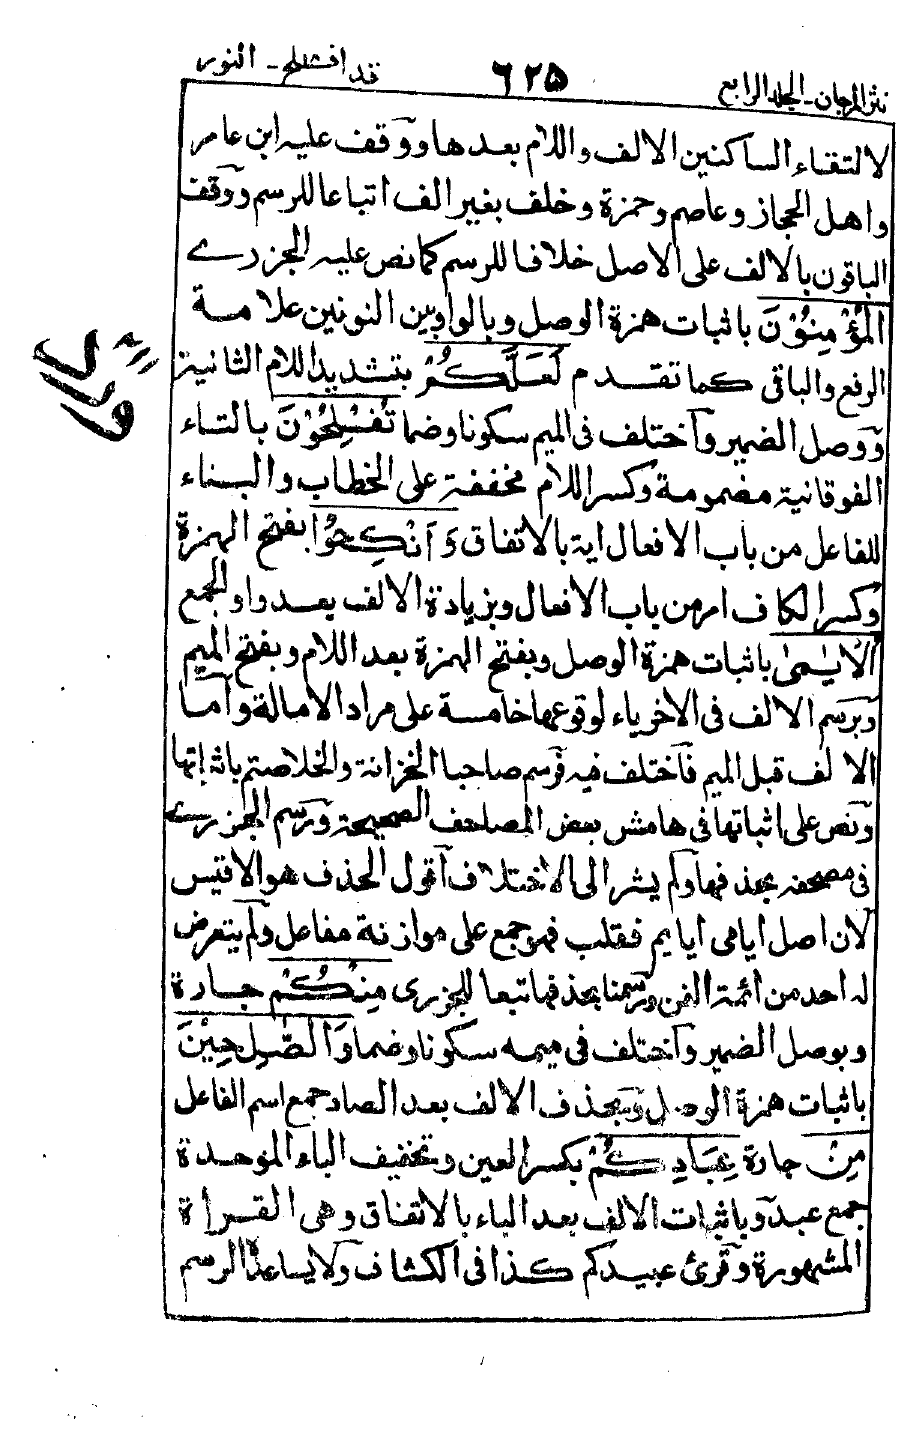 نثر المرجان - الجلد الرابع
٦٢٥
قد افلح - النور
لالتقاء الساكنين الالف واللام بعدها ووقف عليه ابن عامر
واهل الحجاز وعاصم وحمزة وخلف بغير الف اتباعا للرسم ووقف
الباقون بالالف على الاصل خلافا للرسم كما نص عليه الجزرے
الْمُؤْمِنُوْنَ باثبات همزة الوصل وبالواو بين النونين علامة
الرفع والباقى كما تقدم لَعَلَّكُمْ بتشديد اللام الثانية
ووصل الضمير واختلف فى الميم سكونا وضما تُفْلِحُوْنَ بالتاء
الفوقانية مضمومة وكسر اللام مخففة على الخطاب والبناء
للفاعل من باب الافعال اية بالاتفاق وَاَنْكِحُوا بفتح الهمزة
وكسر الكاف امر من باب الافعال وبزيادة الالف بعد واو الجمع
الْاَيٰمىٰ باثبات همزة الوصل وبفتح الهمزة بعد اللام وبفتح الميم
وبرسم الالف فى الاخر ياء لوقوعها خامسة على مراد الامالة واما
الالف قبل الميم فاختلف فيه فرسم صاحبا الخزانة والخلاصة باثباتها
ونص على اثباتها فى هامش بعض المصاحف الصحيحة ورسم الجزرے
فى مصحفه بحذفها ولم يشر الى الاختلاف اقول الحذف هو الاقيس
لان اصل ايامى ايايم فقلب فهو جمع على موازنة مفاعل ولم يتعرض
له احد من ائمة الفن ورسمنا بحذفها تبعا للجزرى مِنْكُمْ جارة
وبوصل الضمير واختلف فى ميمه سكونا وضما وَالصّٰلِحِيْنَ
باثبات همزة الوصل وبحذف الالف بعد الصاد جمع اسم الفاعل
مِنْ جارة عِبَادِكُمْ بكسر العين وتخفيف الباء الموحدة
جمع عبد وباثبات الالف بعد الباء بالاتفاق وهى القراة
المشهورة وقرئ عبيدكم كذا فى الكشاف ولا يساعده الرسم